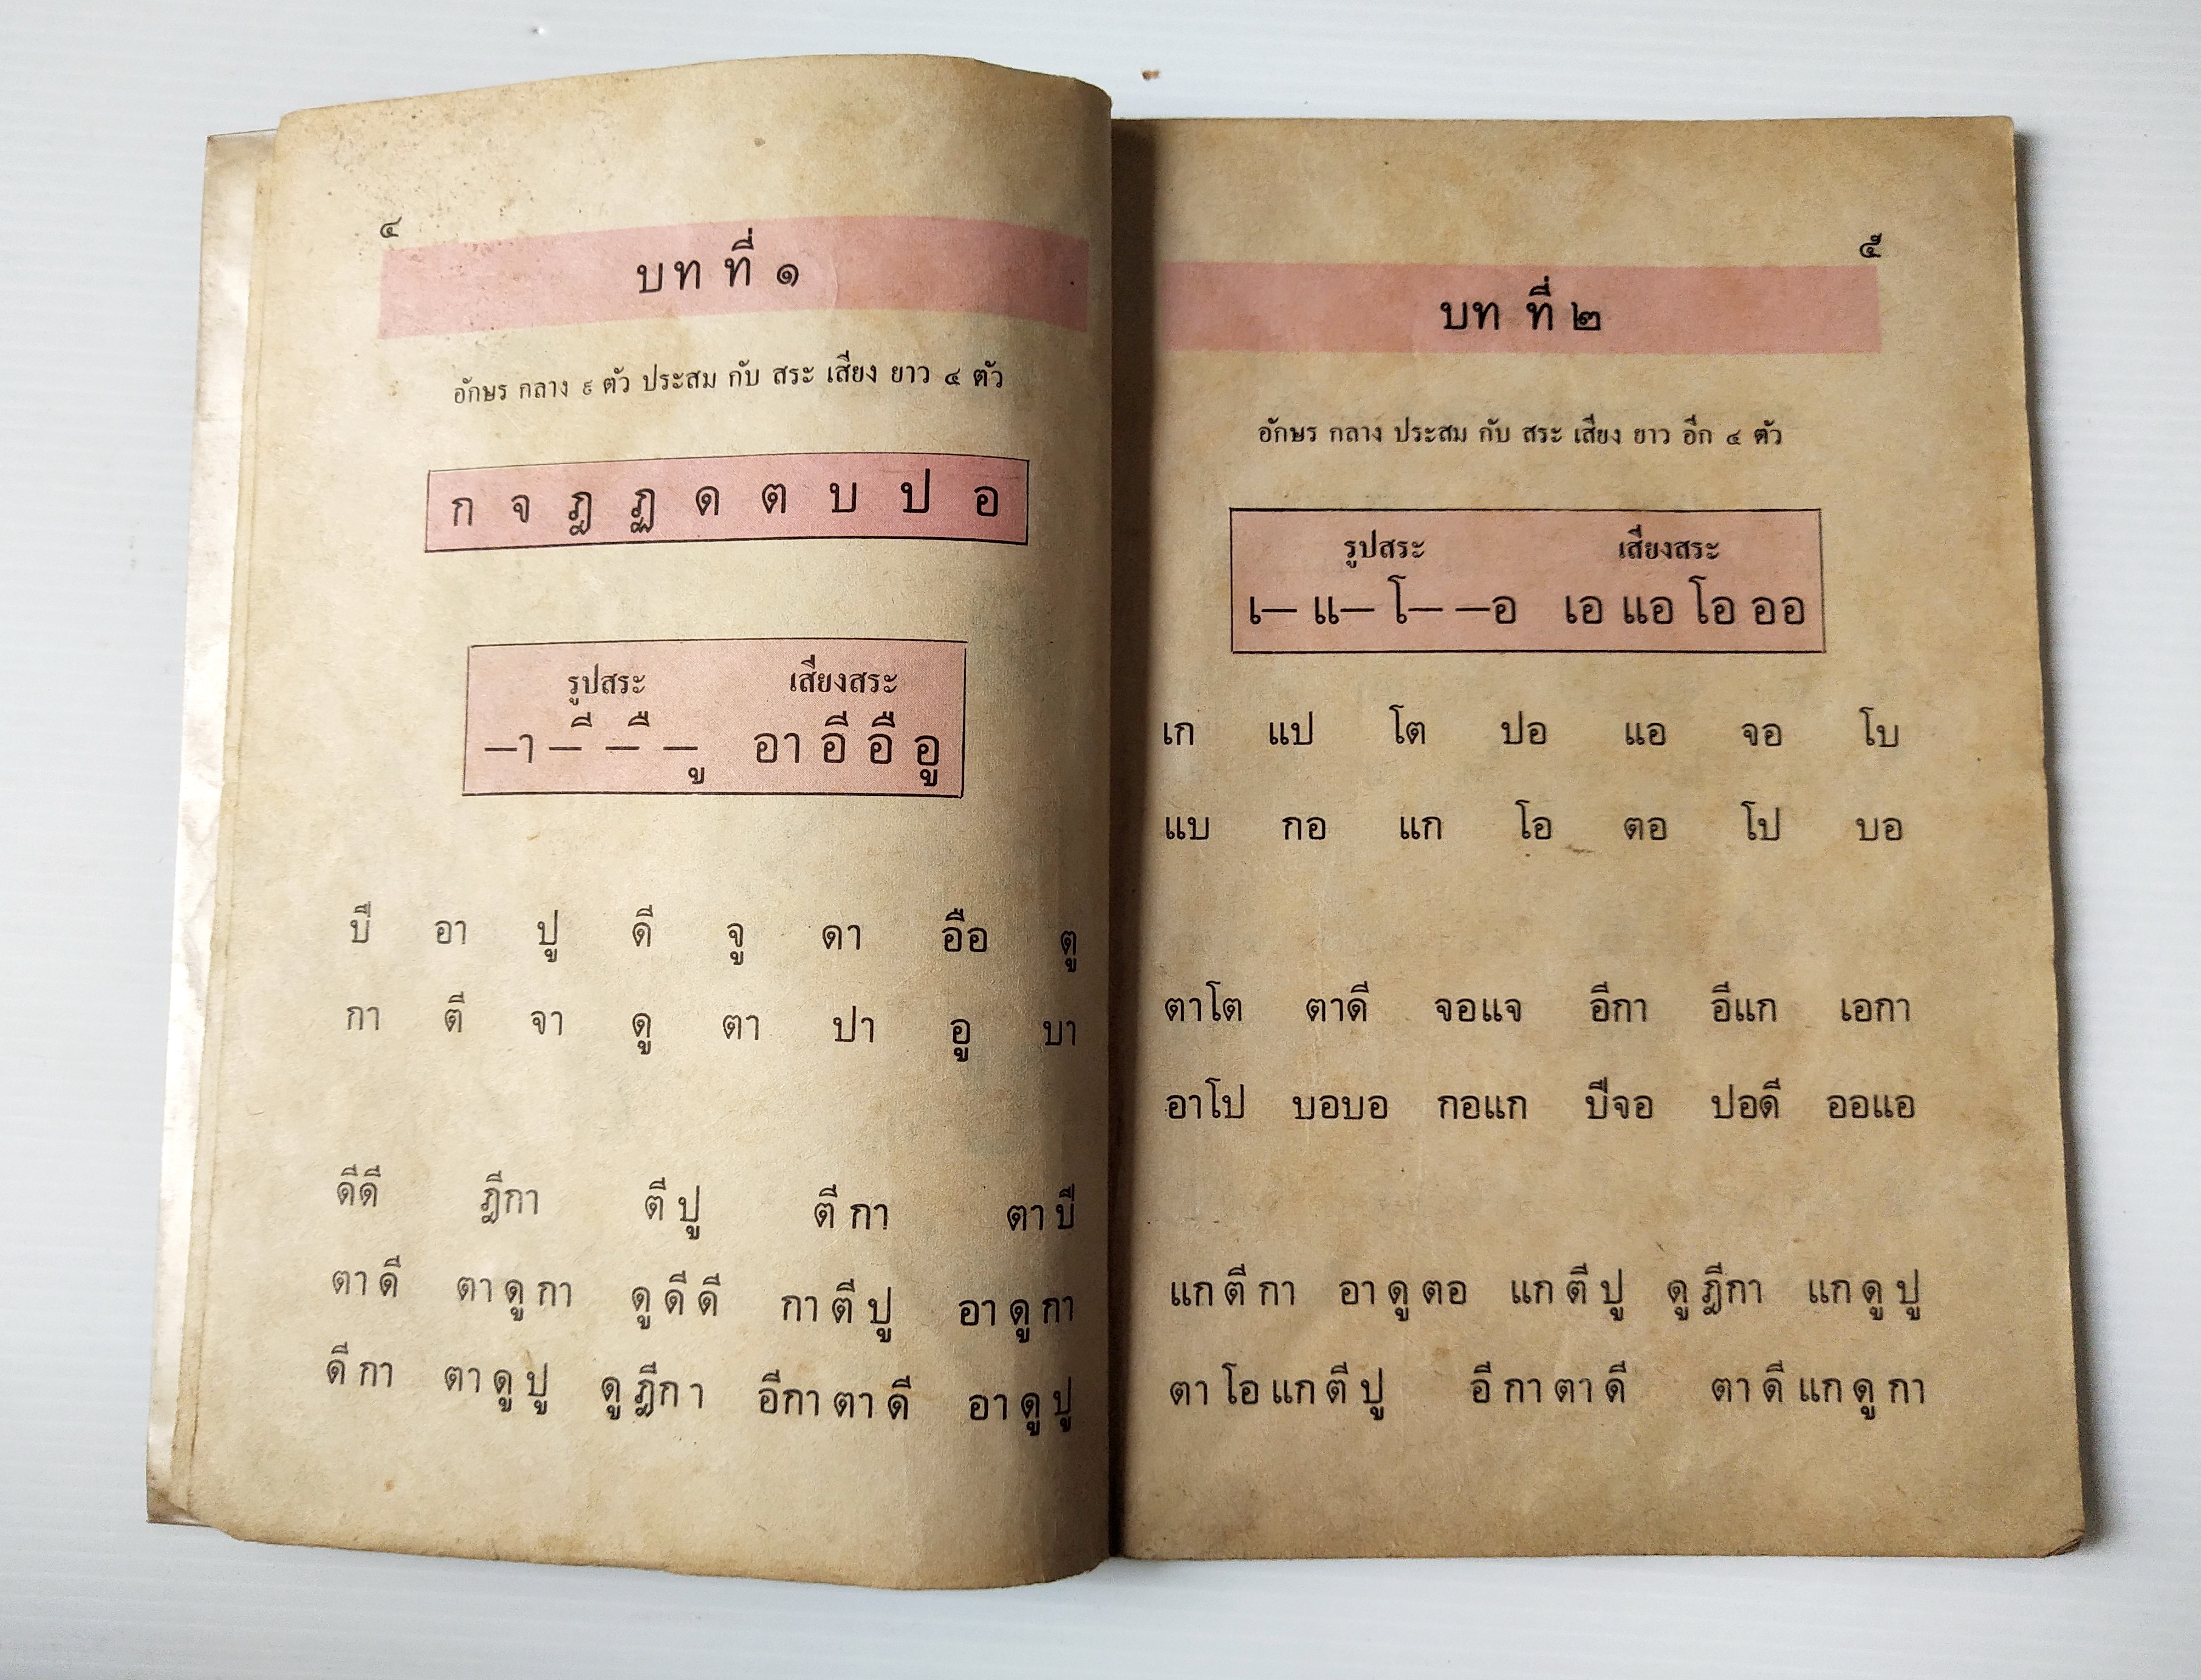 ๔
บท ที่ ๑
อักษร กลาง ๙ ตัว ประสม กับ สระ เสียง ยาว ๔ ตัว
ก จ ฎ ฏ ด ต บ ป อ
รูปสระ เสียงสระ
—า —ี —ื —ู อา อี อื อู
บี อา ปู ดี จู ดา อือ ตู
กา ตี จา ดู ตา ปา อู บา
ดีดี ฎีกา ตี ปู ตี กา ตา บี
ตา ดี ตา ดู กา ดู ดี ดี กา ตี ปู อา ดู กา
ดี กา ตา ดู ปู ดู ฎีกา อีกา ตา ดี อา ดู ปู
๕
บท ที่ ๒
อักษร กลาง ประสม กับ สระ เสียง ยาว อีก ๔ ตัว
รูปสระ เสียงสระ
เ— แ— โ— —อ เอ แอ โอ ออ
เก แป โต ปอ แอ จอ โบ
แบ กอ แก โอ ตอ โป บอ
ตาโต ตาดี จอแจ อีกา อีแก เอกา
อาโป บอบอ กอแก บีจอ ปอดี ออแอ
แก ตี กา อา ดู ตอ แก ตี ปู ดู ฎีกา แก ดู ปู
ตา โอ แก ตี ปู อี กา ตา ดี ตา ดี แก ดู กา